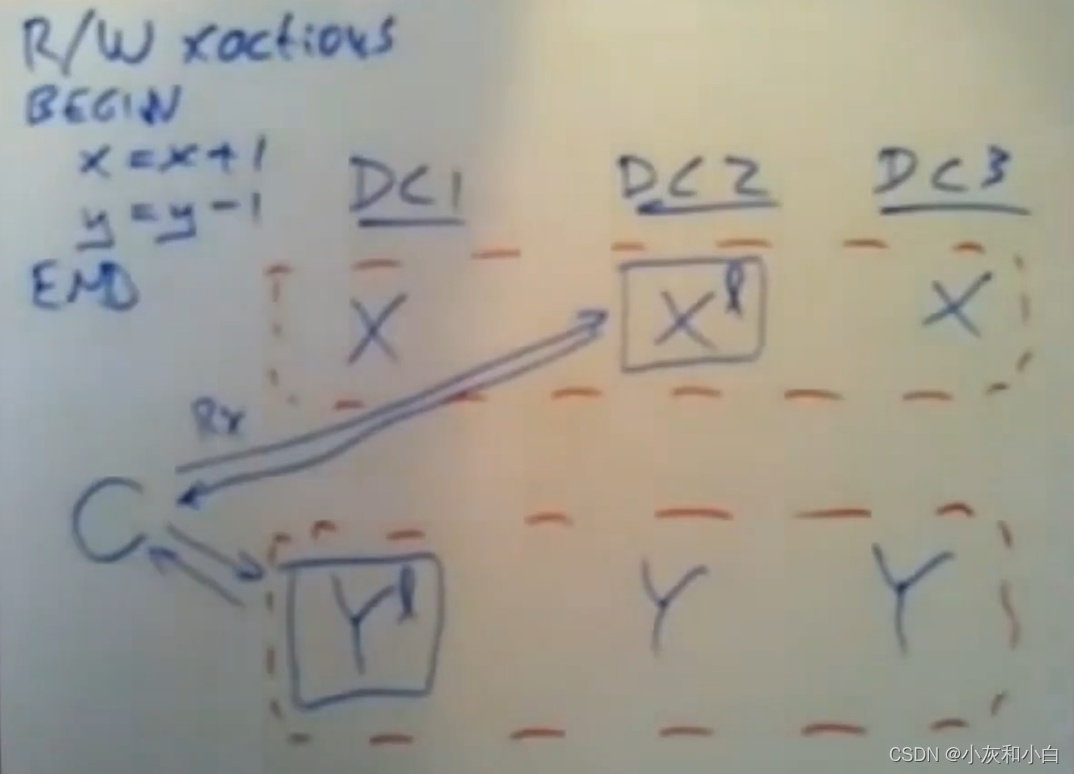 R/W xactions
BEGIN
x = x + 1
y = y - 1
END
DC1 DC2 DC3
X Xl X
Rx
C
Yl Y Y
CSDN @小灰和小白